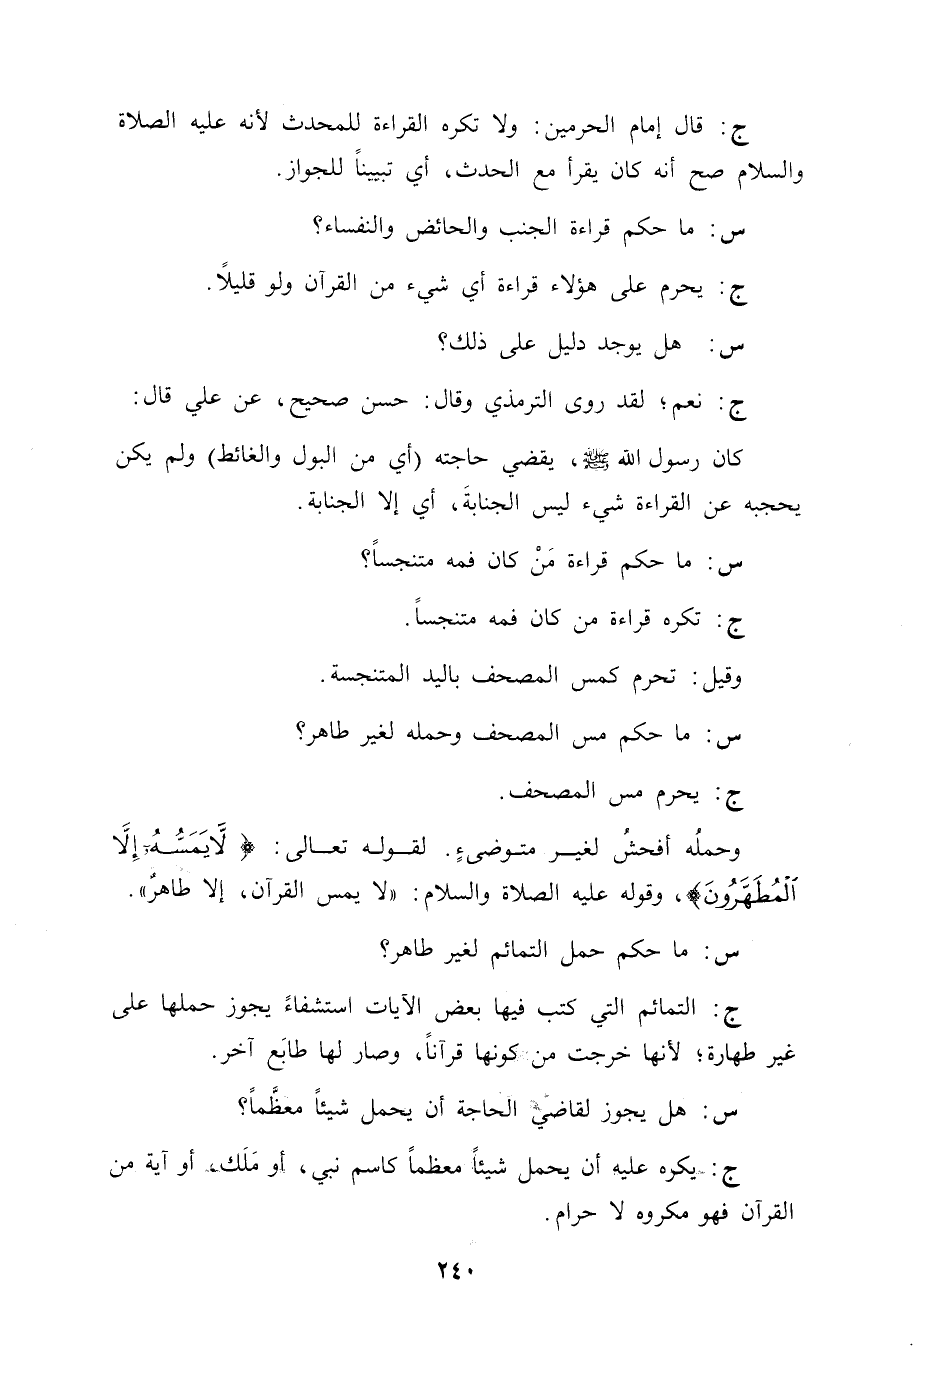 ج: قال إمام الحرمين: ولا تكره القراءة للمحدث لأنه عليه الصلاة
والسلام صح أنه كان يقرأ مع الحدث، أي تبييناً للجواز.
س: ما حكم قراءة الجنب والحائض والنفساء؟
ج: يحرم على هؤلاء قراءة أي شيء من القرآن ولو قليلاً.
س: هل يوجد دليل على ذلك؟
ج: نعم؛ لقد روى الترمذي وقال: حسن صحيح، عن علي قال:
كان رسول الله ﷺ، يقضي حاجته (أي من البول والغائط) ولم يكن
يحجبه عن القراءة شيء ليس الجنابةَ، أي إلا الجنابة.
س: ما حكم قراءة مَنْ كان فمه متنجساً؟
ج: تكره قراءة من كان فمه متنجساً.
وقيل: تحرم كمس المصحف باليد المتنجسة.
س: ما حكم مس المصحف وحمله لغير طاهر؟
ج: يحرم مس المصحف.
وحملُه أفحشُ لغير متوضىءٍ. لقوله تعالى: ﴿لَّا يَمَسُّهُۥٓ إِلَّا
ٱلْمُطَهَّرُونَ﴾، وقوله عليه الصلاة والسلام: «لا يمس القرآن، إلا طاهرٌ».
س: ما حكم حمل التمائم لغير طاهر؟
ج: التمائم التي كتب فيها بعض الآيات استشفاءً يجوز حملها على
غير طهارة؛ لأنها خرجت من كونها قرآناً، وصار لها طابَع آخر.
س: هل يجوز لقاضي الحاجة أن يحمل شيئاً معظَّماً؟
ج: يكره عليه أن يحمل شيئاً معظماً كاسم نبي، أو مَلَك، أو آية من
القرآن فهو مكروه لا حرام.
٢٤٠